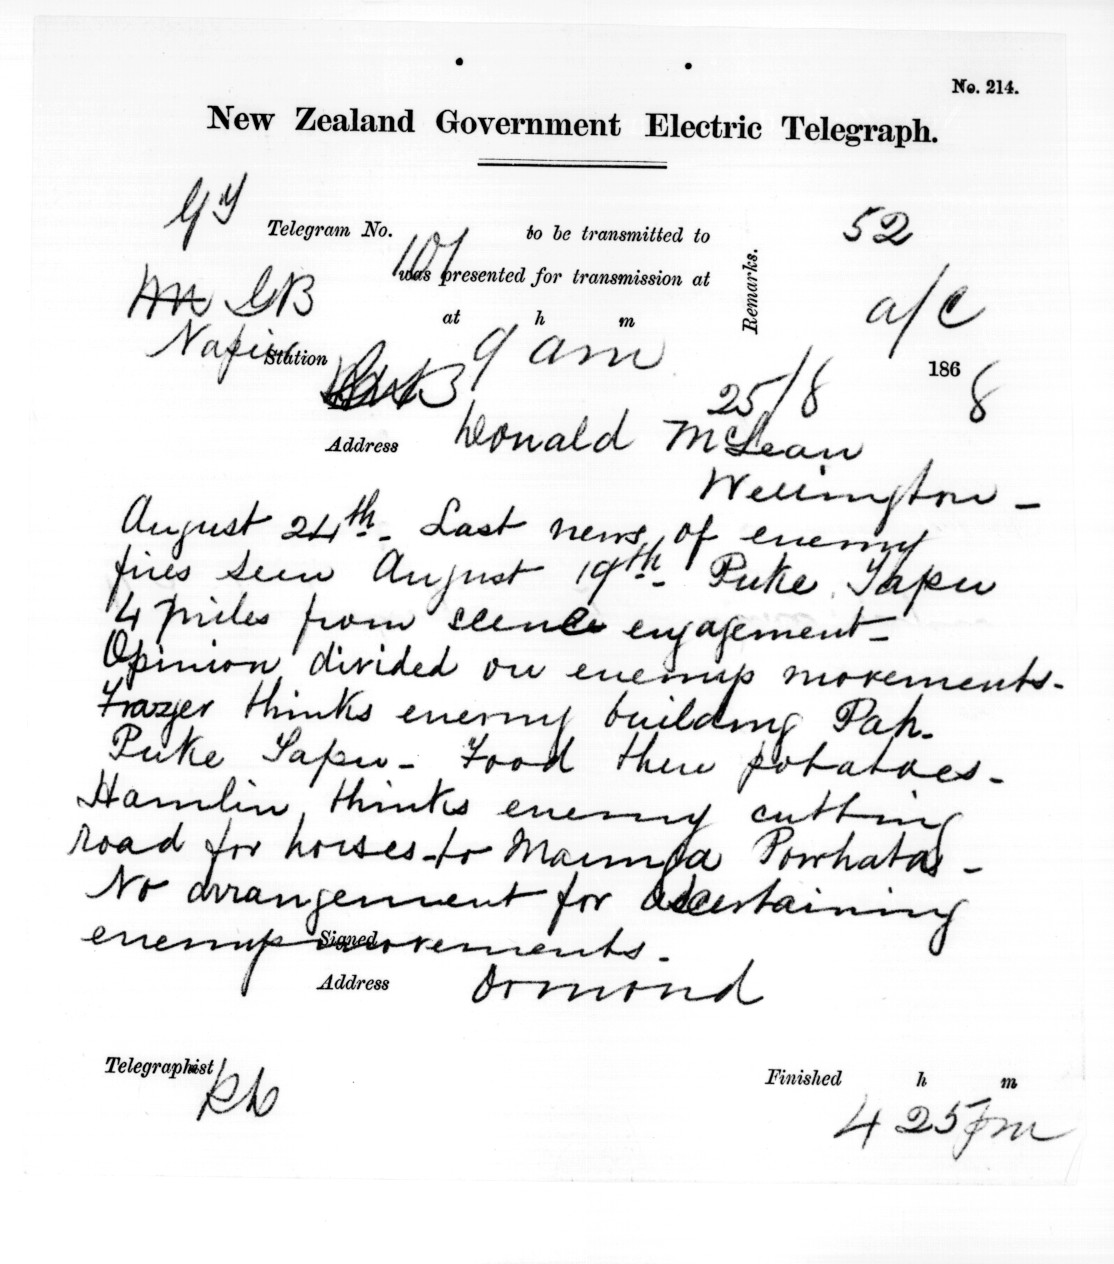 No. 214.
New Zealand Government Electric Telegraph.
Gy
Telegram No. 101 to be transmitted to
52
was presented for transmission at
GB
a/c
at h m
Remarks.
Napier
Station
9 am
1868
25/8
Address Donald McLean
Wellington -
August 24th - Last news of enemy
fires seen August 19th - Puke Tapu
4 miles from scene engagement -
Opinion divided on enemys movements -
Frazer thinks enemy building Pah -
Puke Tapu - Food there potatoes -
Hamlin thinks enemy cutting
road for horses to Maunga Powhatas -
No arrangement for ascertaining
enemys movements -
Signed
Address Ormond
Telegraphist
Finished h m
4 25 pm